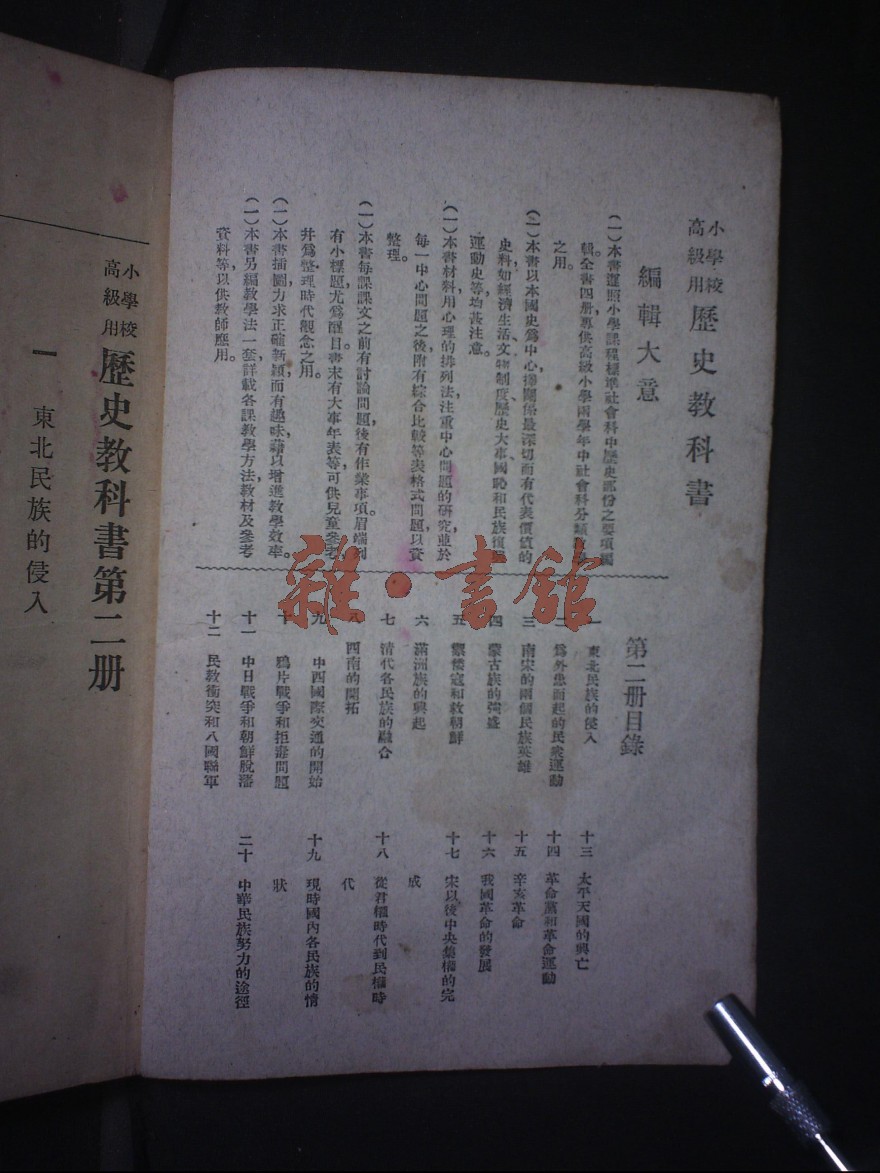 小學校高級用 歷史教科書
編輯大意
(一)本書遵照小學課程標準社會科中歷史部份之要項編
輯全書四册專供高級小學兩學年中社會科分
之用。
(一)本書以本國史爲中心,擇關係最深切而有代表價值的
史料,如經濟生活、文物制度、歷史大事、國恥和民族復興
運動史等均甚注意。
(一)本書材料用心理的排列法,注重中心問題的研究,並於
每一中心問題之後附有綜合比較等表格式問題,以資
整理。
(一)本書每課課文之前有討論問題,後有作業事項。眉端列
有小標題,尤爲醒目。書末有大事年表等,可供兒童參考,
幷爲整理時代觀念之用。
(一)本書插圖力求正確新穎而有趣味,藉以增進教學效率。
(一)本書另編教學法一套,詳載各課教學方法、教材及參考
資料等,以供教師應用。
第二册目錄
一 東北民族的侵入
二 爲外患而起的民衆運動
三 南宋的兩個民族英雄
四 蒙古族的強盛
五 禦倭寇和救朝鮮
六 滿洲族的興起
七 清代各民族的融合
八 西南的開拓
九 中西國際交通的開始
十 鴉片戰爭和拒毒問題
十一 中日戰爭和朝鮮脫藩
十二 民教衝突和八國聯軍
十三 太平天國的興亡
十四 革命黨和革命運動
十五 辛亥革命
十六 我國革命的發展
十七 宋以後中央集權的完
成
十八 從君權時代到民權時
代
十九 現時國內各民族的情
狀
二十 中華民族努力的途徑
雜·書館
小學校高級用 歷史教科書第二册
一 東北民族的侵入